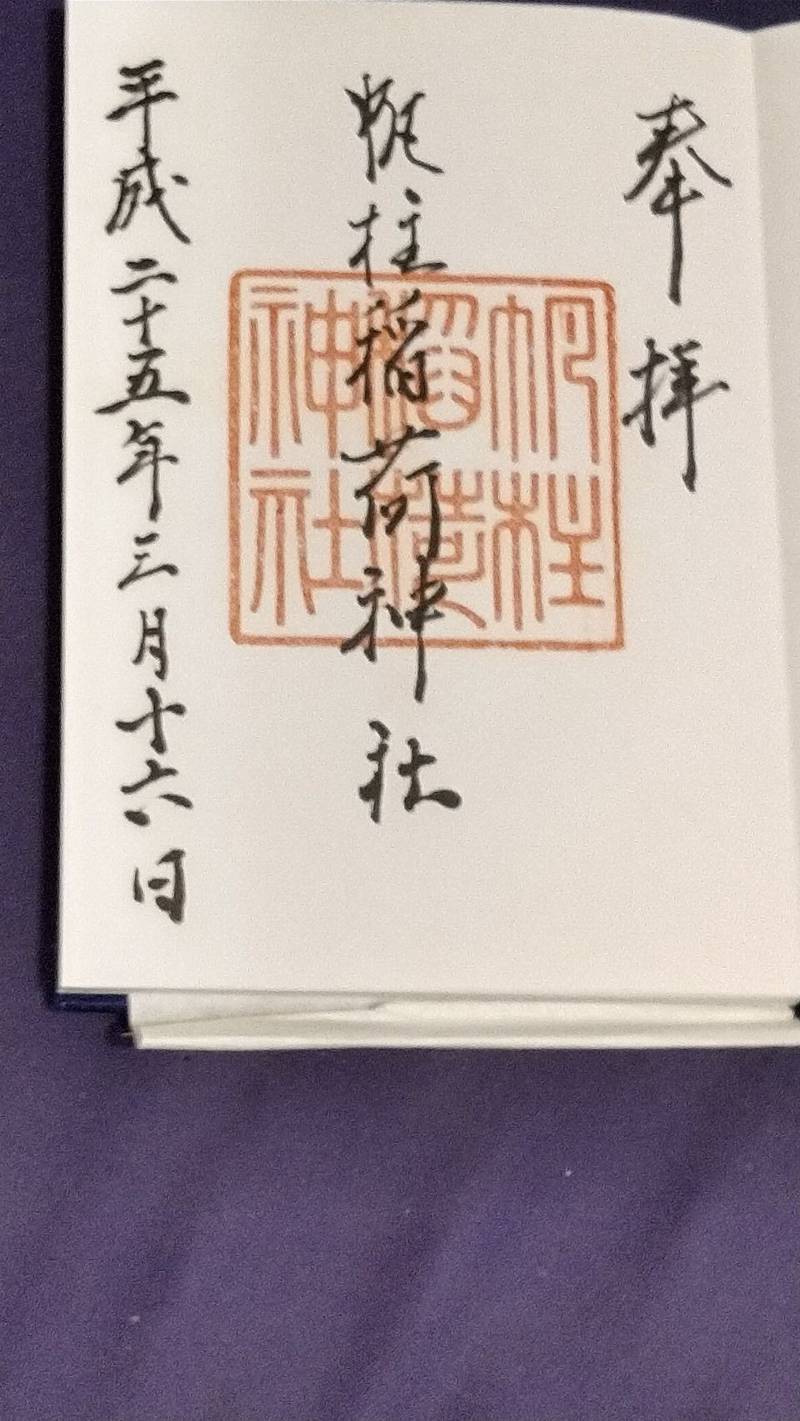 奉拝
帆柱稲荷神社
平成二十五年三月十六日
帆柱
稲荷
神社